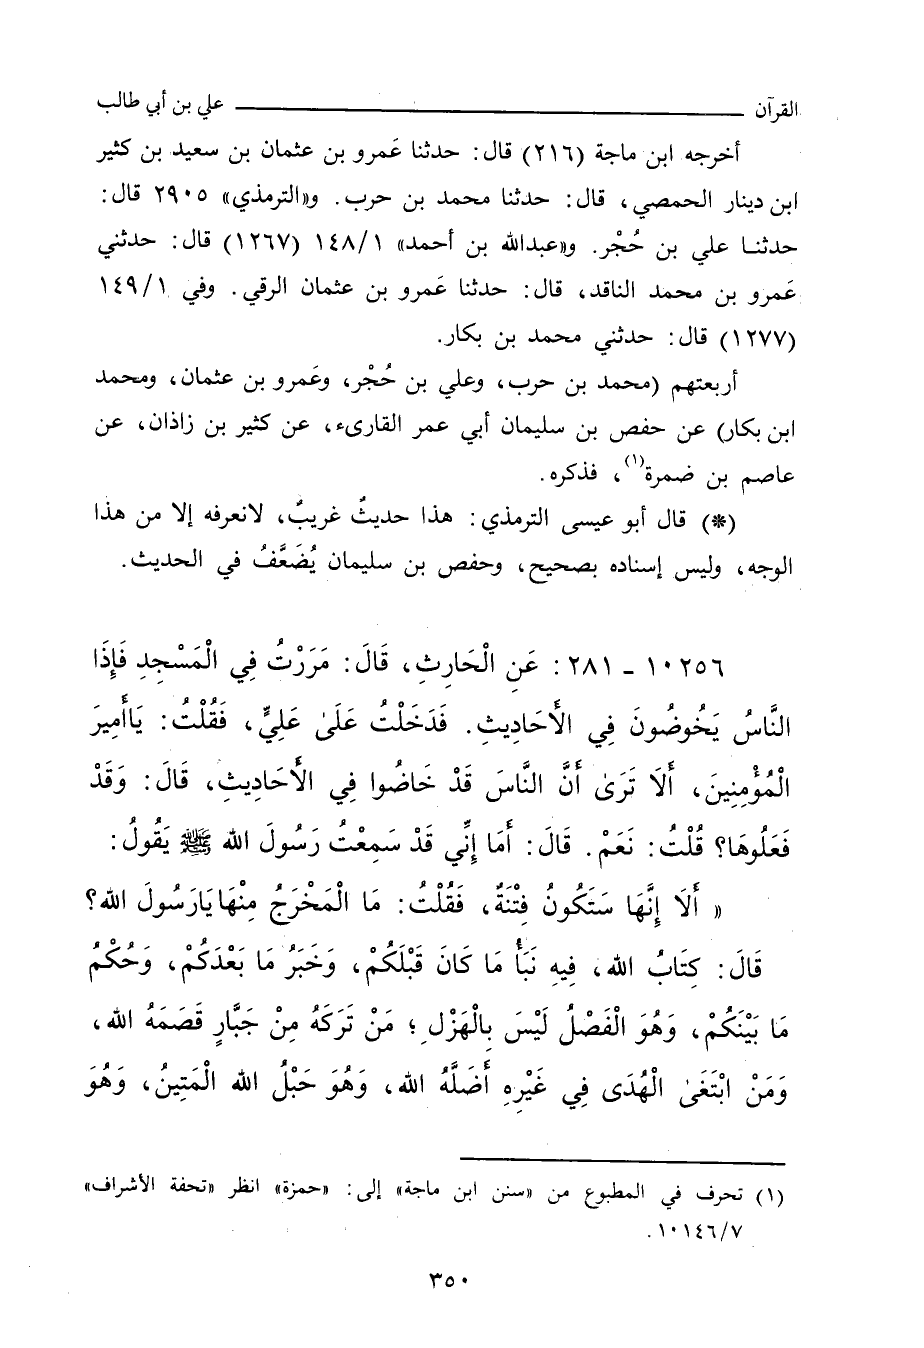 القرآن ـــــــ علي بن أبي طالب
أخرجه ابن ماجة (٢١٦) قال: حدثنا عَمرو بن عثمان بن سعيد بن كثير
ابن دينار الحمصي، قال: حدثنا محمد بن حرب. و«الترمذي» ٢٩٠٥ قال:
حدثنا علي بن حُجْر. و«عبدالله بن أحمد» ١٤٨/١ (١٢٦٧) قال: حدثني
عَمرو بن محمد الناقد، قال: حدثنا عَمرو بن عثمان الرقي. وفي ١٤٩/١
(١٢٧٧) قال: حدثني محمد بن بكار.
أربعتهم (محمد بن حرب، وعلي بن حُجْر، وعَمرو بن عثمان، ومحمد
ابن بكار) عن حفص بن سليمان أبي عمر القارىء، عن كثير بن زاذان، عن
عاصم بن ضمرة(١)، فذكره.
(*) قال أبو عيسى الترمذي: هذا حديثٌ غريبٌ، لانعرفه إلا من هذا
الوجه، وليس إسناده بصحيح، وحفص بن سليمان يُضَعَّفُ في الحديث.
١٠٢٥٦ - ٢٨١: عَنِ الْحَارِثِ، قَالَ: مَرَرْتُ فِي الْمَسْجِدِ فَإِذَا
النَّاسُ يَخُوضُونَ فِي الأَحَادِيثِ. فَدَخَلْتُ عَلَىٰ عَلِيٍّ، فَقُلْتُ: يَاأَمِيرَ
الْمُؤْمِنِينَ، أَلاَ تَرَىٰ أَنَّ النَّاسَ قَدْ خَاضُوا فِي الأَحَادِيثِ، قَالَ: وَقَدْ
فَعَلُوهَا؟ قُلْتُ: نَعَمْ. قَالَ: أَمَا إِنِّي قَدْ سَمِعْتُ رَسُولَ اللهِ ﷺ يَقُولُ:
« أَلاَ إِنَّهَا سَتَكُونُ فِتْنَةٌ، فَقُلْتُ: مَا الْمَخْرَجُ مِنْهَا يَارَسُولَ اللهِ؟
قَالَ: كِتَابُ اللهِ، فِيهِ نَبَأُ مَا كَانَ قَبْلَكُمْ، وَخَبَرُ مَا بَعْدَكُمْ، وَحُكْمُ
مَا بَيْنَكُمْ، وَهُوَ الْفَصْلُ لَيْسَ بِالْهَزْلِ؛ مَنْ تَرَكَهُ مِنْ جَبَّارٍ قَصَمَهُ اللهُ،
وَمَنْ ابْتَغَىٰ الْهُدَى فِي غَيْرِهِ أَضَلَّهُ اللهُ، وَهُوَ حَبْلُ اللهِ الْمَتِينُ، وَهُوَ
(١) تحرف في المطبوع من «سنن ابن ماجة» إلى: «حمزة» انظر «تحفة الأشراف»
١٠١٤٦/٧.
٣٥٠